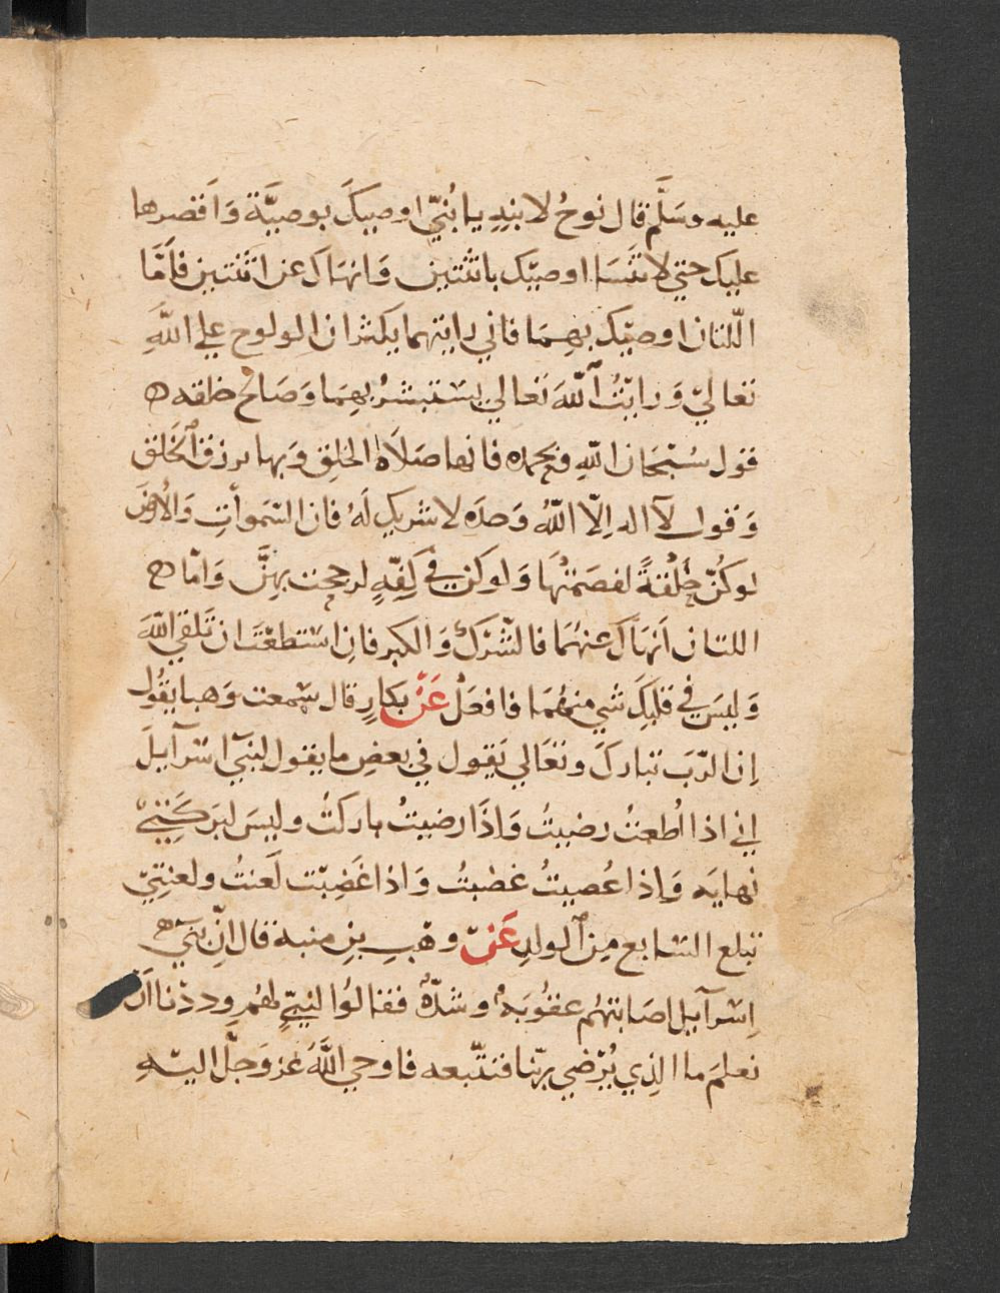 عليه وسَلَّم قال نوحُ لابنِهِ يا بُنَيّ اوصيكَ بوصيَّة وَاَقصرها
عليك حتي لا تَنسَا اوصيّك باثنَتين وَانهَاكَ عن اثنَتين فاَمَّا
الّلتان اوصيّك بهِمَا فاني رايتهما يكثران الولوح علي اللَّهِ
تعاليّ وَرايّتُ اَللّهَ تَعالي يستبشرُ بهِمَا وَصَالح خلقه ه
قول سُبْحَان اللّهِ وَبحمده فانها صَلَاةُ الخلقِ وَبها يرزق اَلخَلق
وَقول لآ اله اِلّا اللّهُ وَحدَه لا شريك لَهُ فان السَموأتِ وَالأرضَ
لو كُنّ حَلْقةً لفصَمتْهَا وَلو كن في كِفّةٍ لرجحت بهِنَّ وَامّا ه
اللتان اَنهَاكَ عنهُمَا فالشركُ وَالكبر فاِن استطعْتَ ان تَلقي اللّهَ
وَليسَ في قلبكَ شي منهُمَا فافعَلْ عَنْ بكارٍ قال سَمعت وَهبا يقُول
اِن الرّبَ تبارك وتعَالي يَقول في بعضِ ما يقول لبنيَ اسرآيلَ
اِني اذا اُطعتُ رضيتُ وَاِذَا رضيتُ باركتُ وليسَ لبَركَتِيّ
نهايَه وَاِذا عُصيتُ غضبتُ وَاذا غَضِبّت لَعنتُ ولعنتِيّ
تبلع السابع مِن اَلولدِ عَنّ وهّبِ بنِ منبة قال اِنّ بنيَ ه
اِسرآيل اصَابتهُم عقوُبَةٌ وشدّةٌ فقالوُا لنبيٍّ لهُم وددْنا اَنْ
نعلمَ ما الذِي يُرْضي ربّنا فنتّبعه فاوحي اللَّهُ عَز وَجلّ اليّهِ